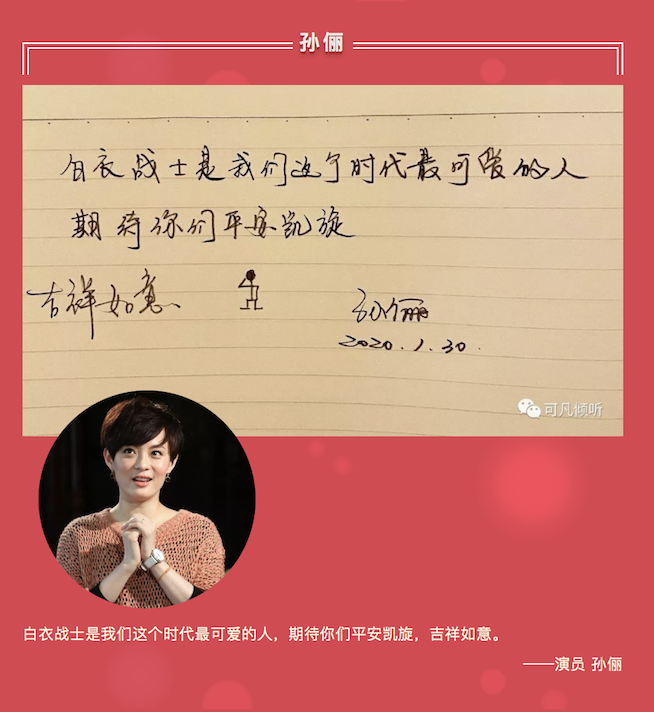 孙俪
白衣战士是我们这个时代最可爱的人
期待你们平安凯旋
吉祥如意
孙俪
2020.1.30.
可凡倾听
白衣战士是我们这个时代最可爱的人，期待你们平安凯旋，吉祥如意。
——演员 孙俪